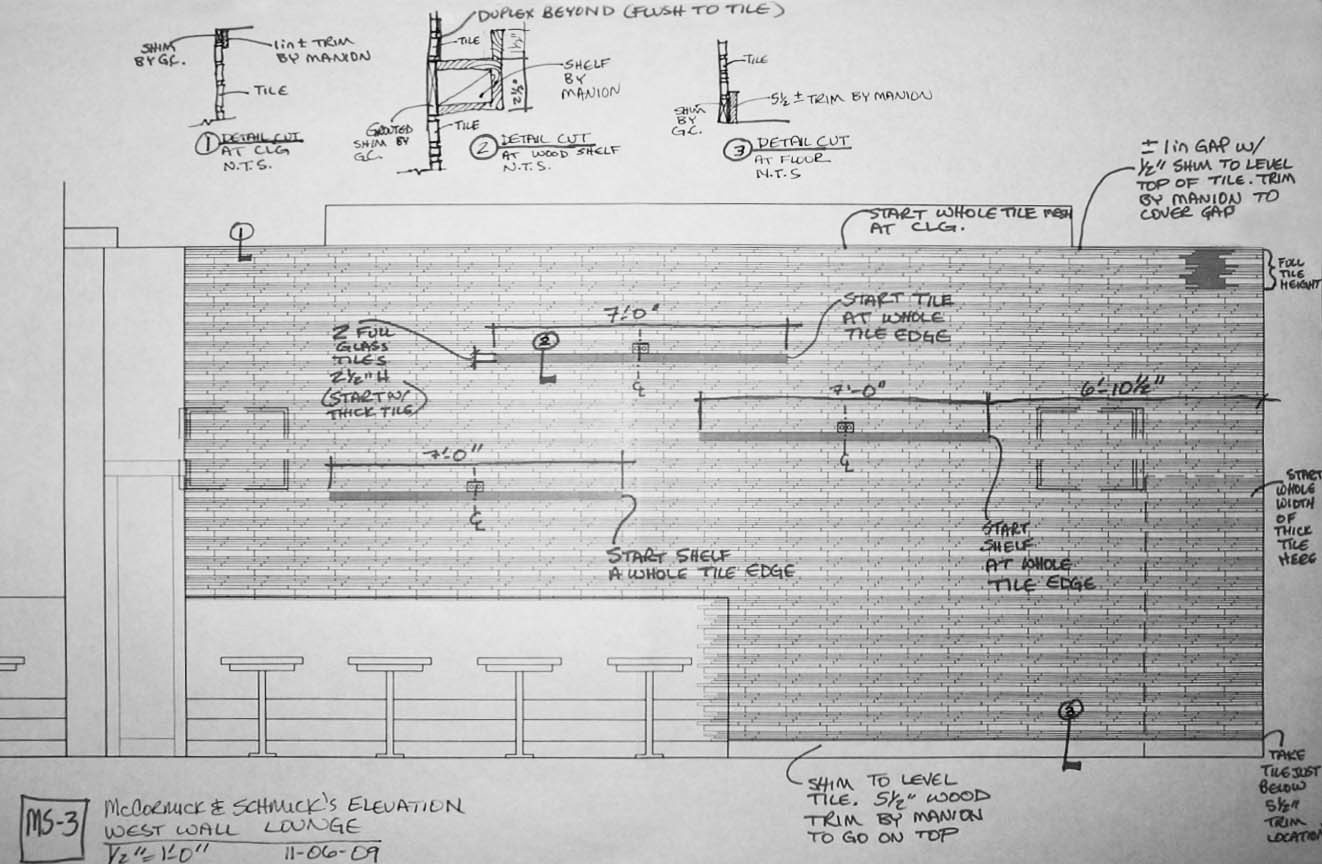 DUPLEX BEYOND (FLUSH TO TILE)
SHIM
BY G.C.
1in± TRIM
BY MANION
TILE
1 DETAIL CUT
AT CLG
N.T.S.
TILE
SHELF
BY
MANION
GROUTED
SHIM BY
G.C.
TILE
2 DETAIL CUT
AT WOOD SHELF
N.T.S.
TILE
SHIM
BY
G.C.
5½ ± TRIM BY MANION
3 DETAIL CUT
AT FLOOR
N.T.S
± 1in GAP W/
½" SHIM TO LEVEL
TOP OF TILE. TRIM
BY MANION TO
COVER GAP
START WHOLE TILE MESH
AT CLG.
1
FULL
TILE
HEIGHT
7'-0"
START TILE
AT WHOLE
TILE EDGE
2 FULL
GLASS
TILES
2½" H
(START W/
THICK TILE)
2
CL
7'-0"
6'-10½"
CL
7'-0"
CL
START SHELF
A WHOLE TILE EDGE
START
SHELF
AT WHOLE
TILE EDGE
START
WHOLE
WIDTH
OF
THICK
TILE
HERE
3
SHIM TO LEVEL
TILE. 5½" WOOD
TRIM BY MANION
TO GO ON TOP
TAKE
TILE JUST
BELOW
5½"
TRIM
LOCATION
MS-3
McCORMICK & SCHMICK'S ELEVATION
WEST WALL LOUNGE
½"=1'-0" 11-06-09